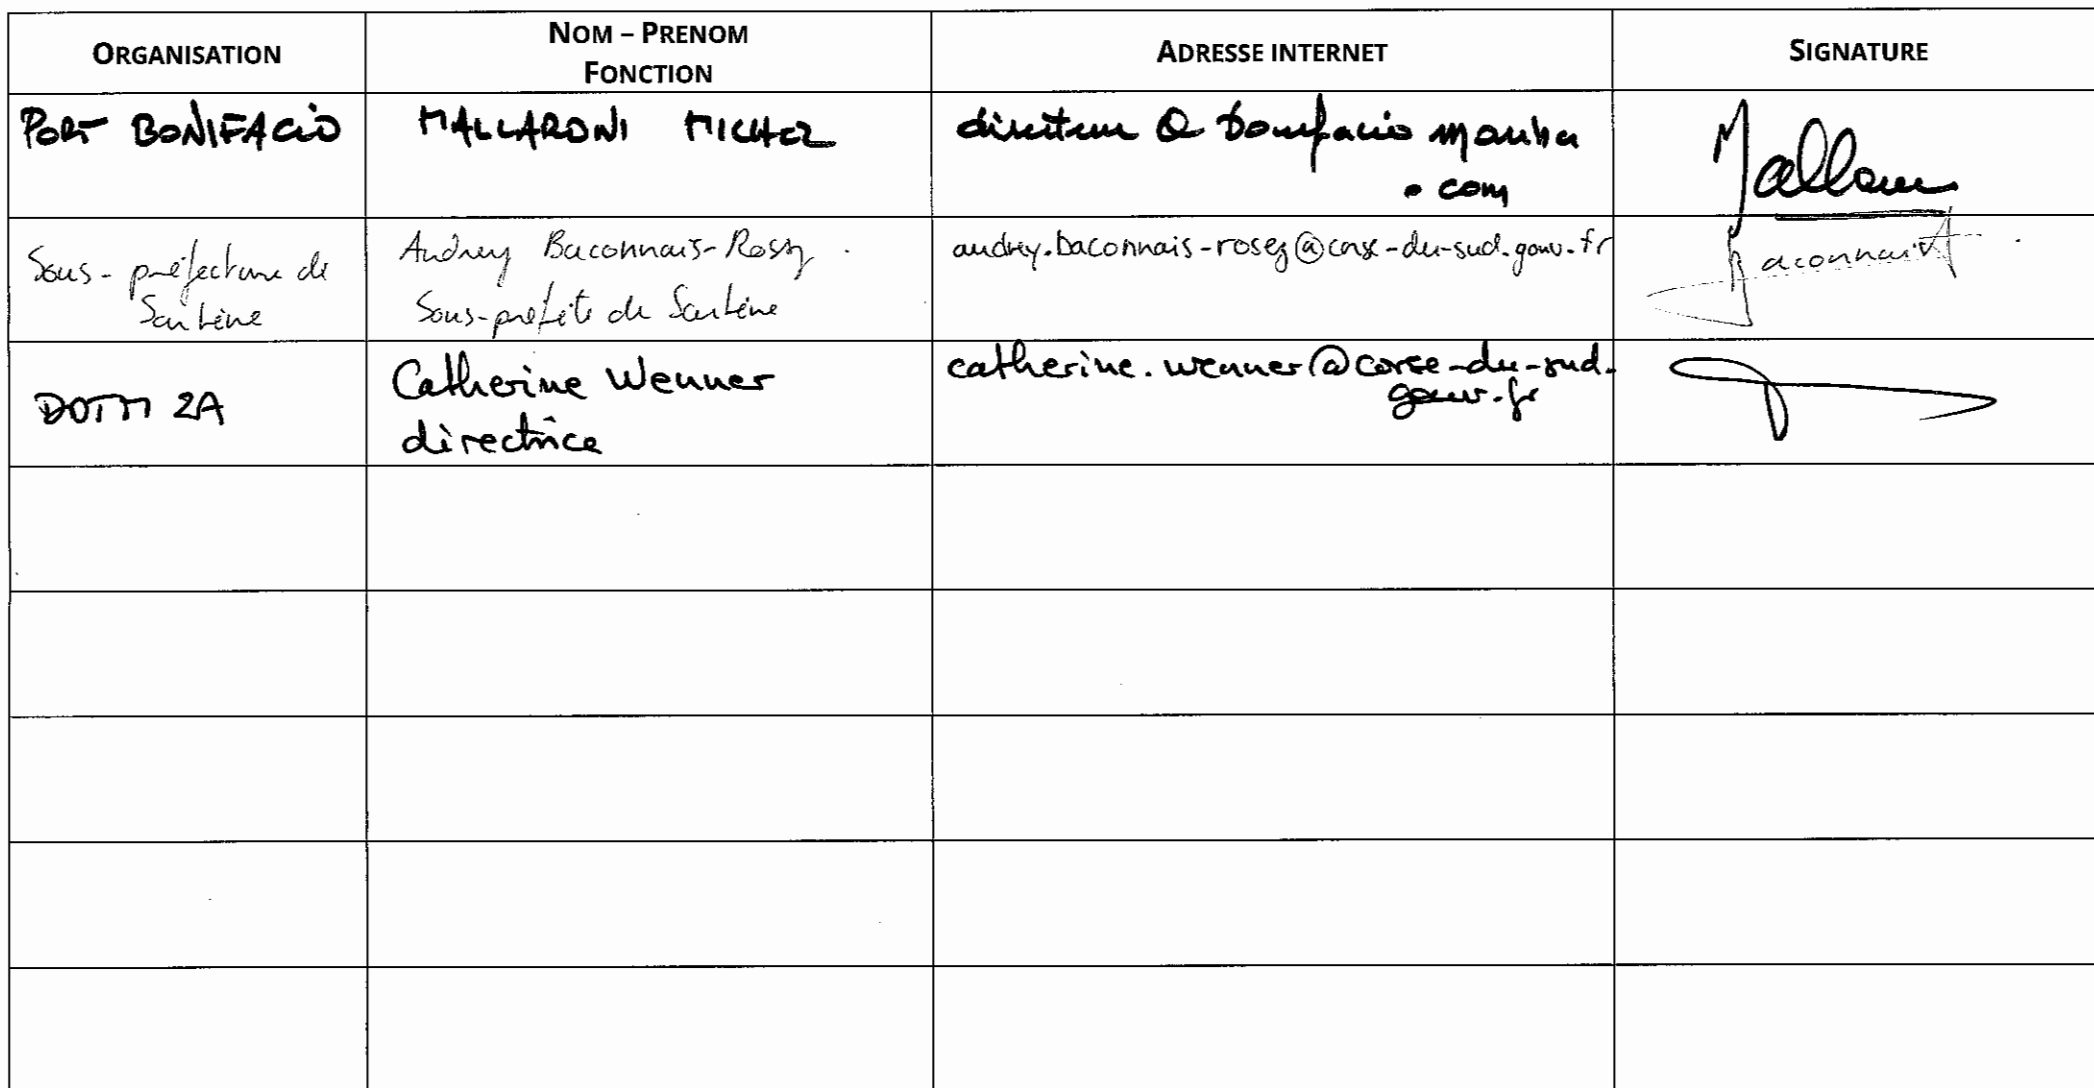 ORGANISATION
NOM – PRENOM
FONCTION
ADRESSE INTERNET
SIGNATURE
PORT BONIFACIO
MALLARONI MICHEL
directeur @ bonifacio marina
. com
Sous-préfecture de
Sartène
Audrey Baconnais-Rosez
Sous-préfète de Sartène
audrey.baconnais-rosez@corse-du-sud.gouv.fr
Baconnais
DDTM 2A
Catherine Wenner
directrice
catherine.wenner@corse-du-sud.
gouv.fr